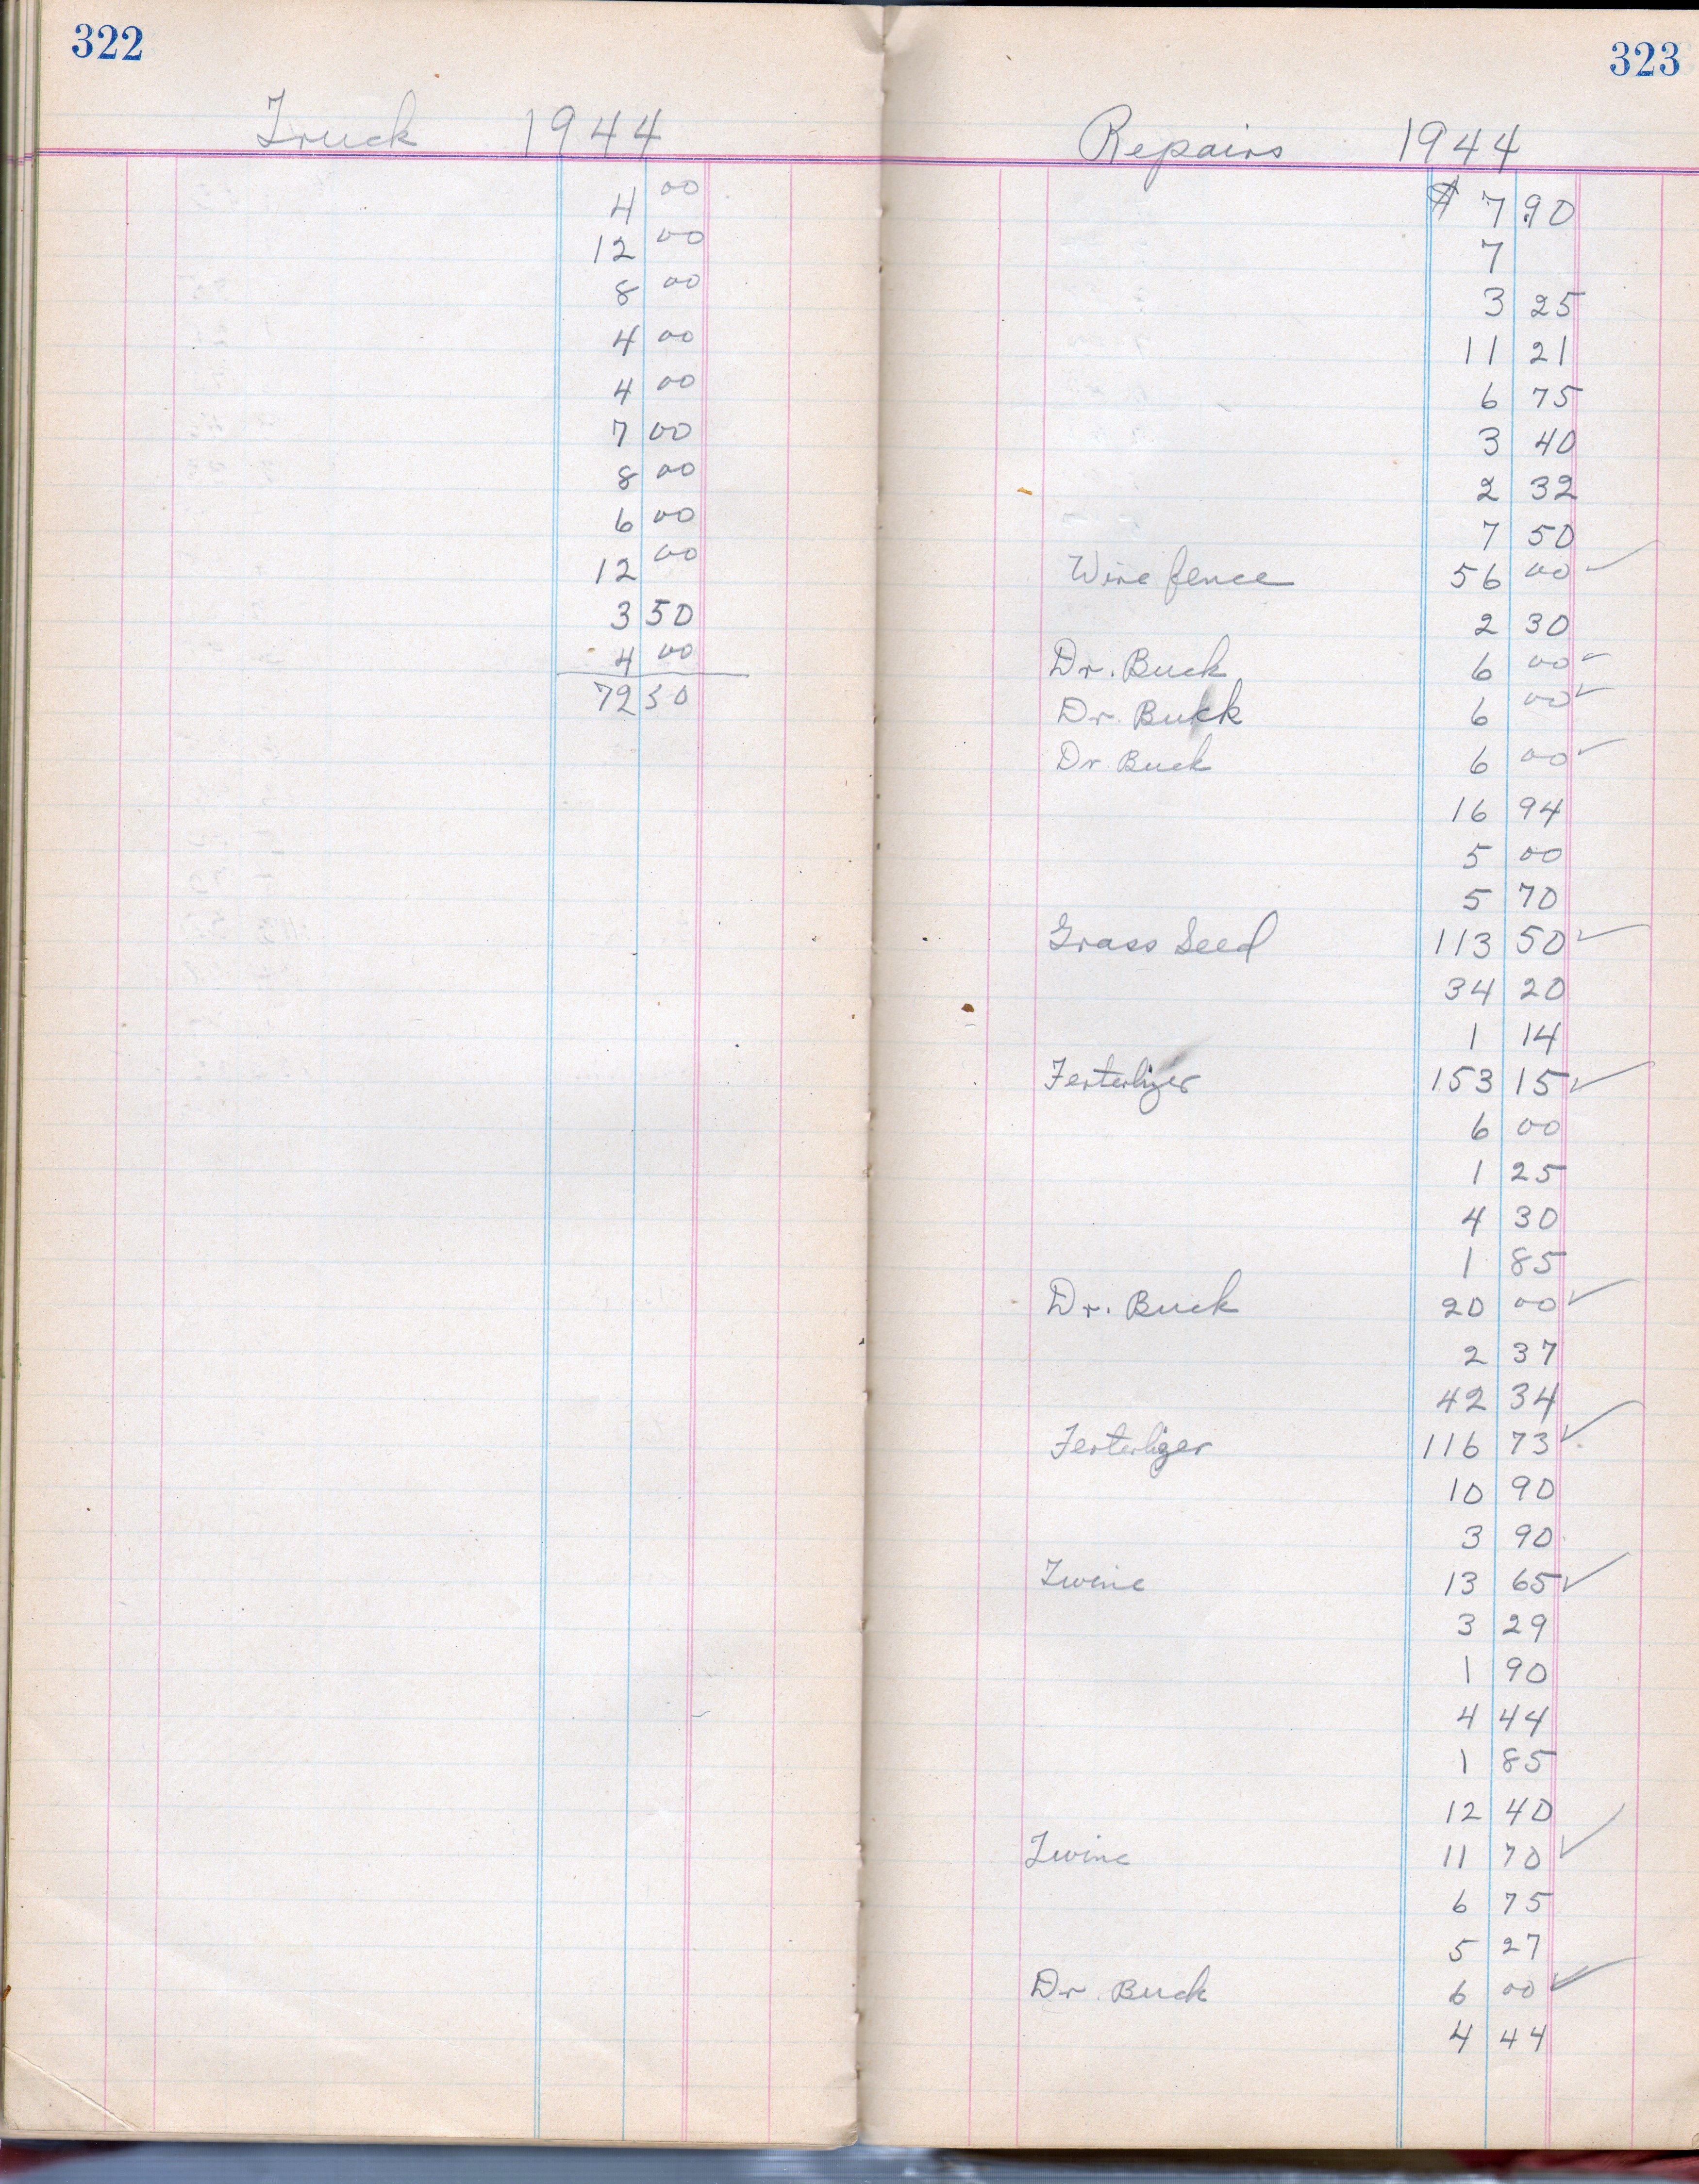 322
Truck 1944
4 00
12 00
8 00
4 00
4 00
7 00
8 00
6 00
12 00
3 50
4 00
72 50
323
Repairs 1944
$ 7 90
7
3 25
11 21
6 75
3 40
2 32
7 50
Wire fence 56 00 ✓
2 30
Dr. Buck 6 00 ✓
Dr. Buck 6 00 ✓
Dr. Buck 6 00 ✓
16 94
5 00
5 70
Grass Seed 113 50 ✓
34 20
1 14
Ferterlizer 153 15 ✓
6 00
1 25
4 30
1 85
Dr. Buck 20 00 ✓
2 37
42 34
Ferterlizer 116 73 ✓
10 90
3 90
Twine 13 65 ✓
3 29
1 90
4 44
1 85
12 40
Twine 11 70 ✓
6 75
5 27
Dr. Buck 6 00 ✓
4 44